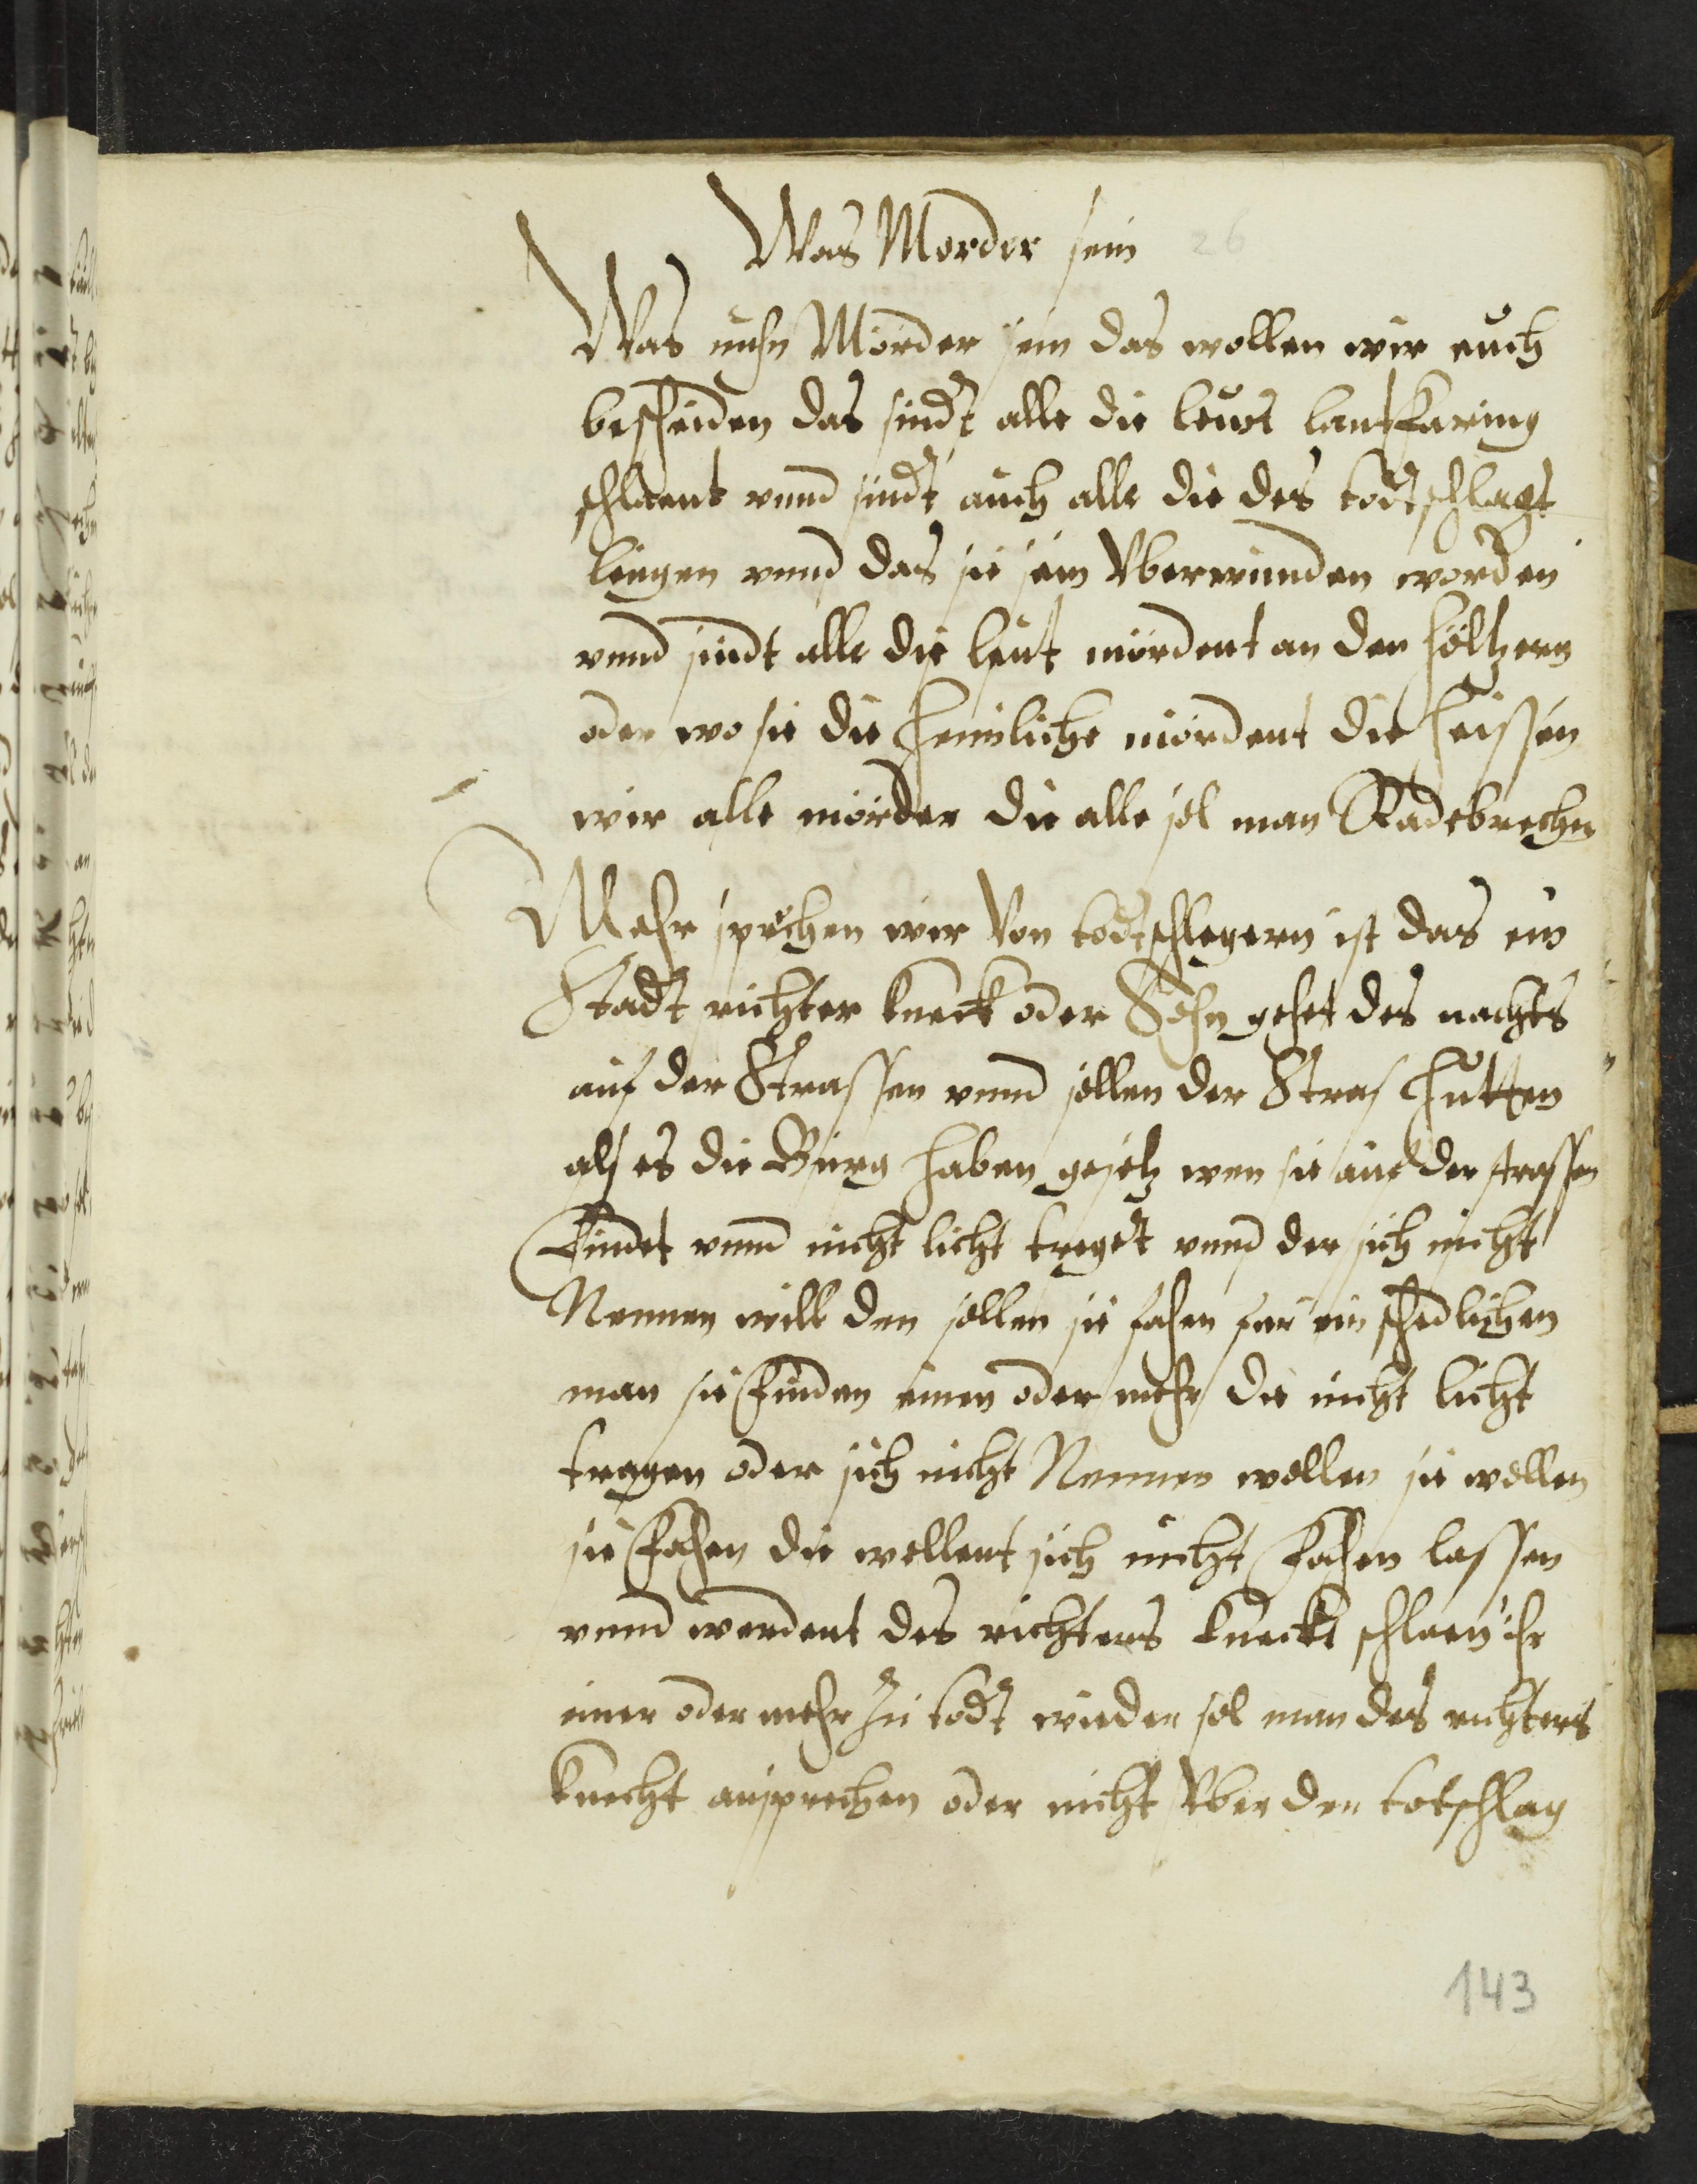 Was Morder sein 26
Was nuhn Mörder sein das wollen wir euch
bescheiden das sindt alle die leut lantkaring
schlaent vnnd sindt auch alle die des todtschlagt
leugen vnnd das sie sein Vberwunden worden
vnnd sindt alle die leut mördent an den Höltzern
oder wo sie die Heimliche mördent die heissen
wir alle mörder die alle sol man Radebrechen
Mehr sprechen wir Von todtschlegern ist das ein
Stadt richter kneckt oder Sohn gehet des nachts
auf der Strassen vnnd sollen der Stras Hutten
als es die Burg haben gesetz wen sie auf der strassen
Findet vnnd nicht licht treget vnnd der sich nicht
Nennen will den sollen sie fahen fur ein schedlichen
man sie Finden einen oder mehr die nicht licht
tragen oder sich nicht Nennen wollen sie wollen
sie Fahen die wollent sich nicht Fahen lassen
vnnd werdent des richters kneckt schlaen ihr
einer oder mehr zu todt wieder sol man des richters
knecht ansprechen oder nicht Vber den totschlag
143